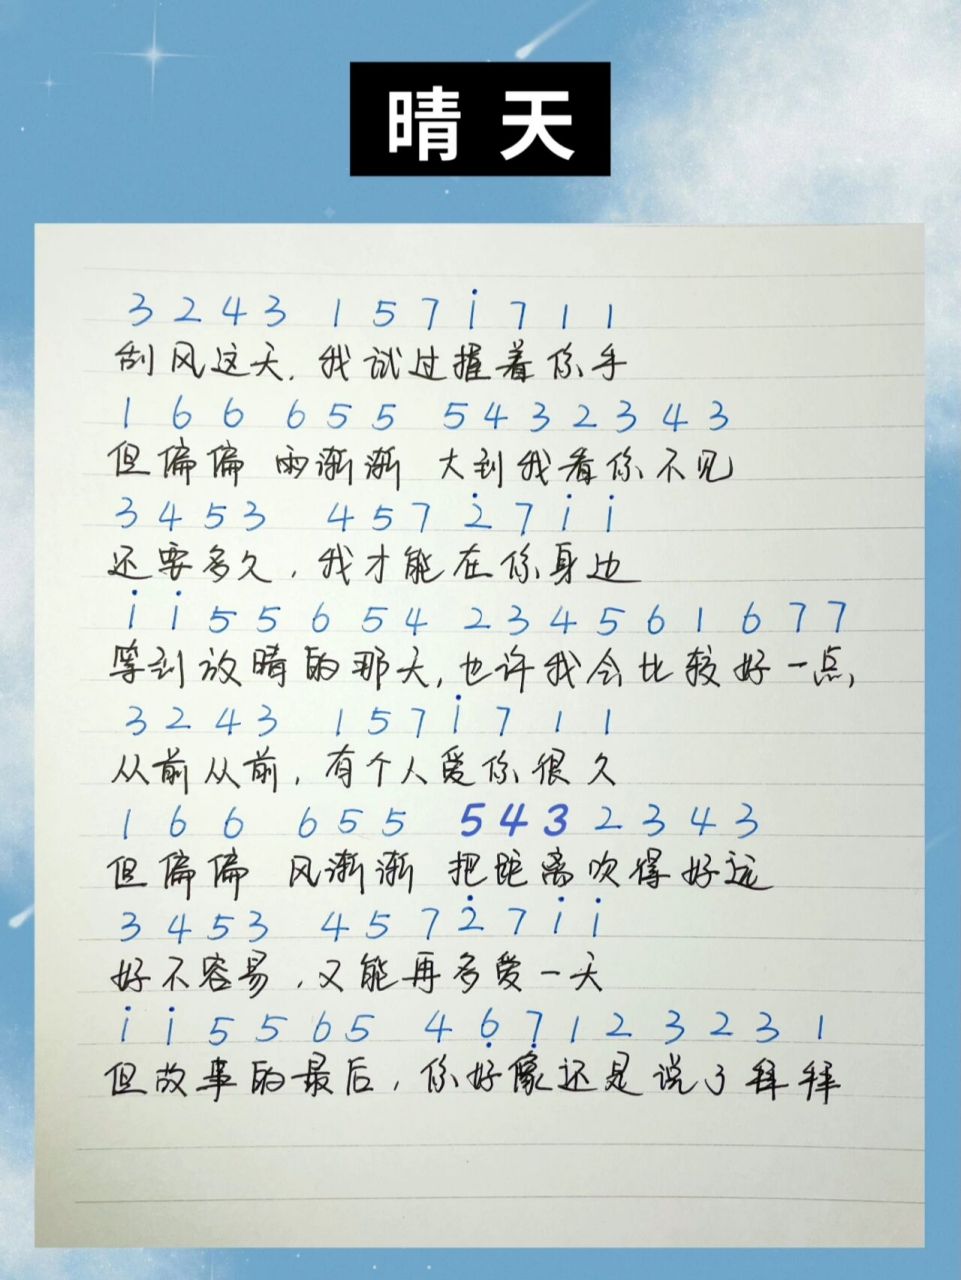 晴天
3 2 4 3 1 5 7 i 7 1 1
刮风这天,我试过握着你手
1 6 6 6 5 5 5 4 3 2 3 4 3
但偏偏 雨渐渐 大到我看你不见
3 4 5 3 4 5 7 2̇ 7 i i
还要多久,我才能在你身边
i i 5 5 6 5 4 2 3 4 5 6 1 6 7 7
等到放晴的那天,也许我会比较好一点,
3 2 4 3 1 5 7 i 7 1 1
从前从前,有个人爱你很久
1 6 6 6 5 5 5 4 3 2 3 4 3
但偏偏 风渐渐 把距离吹得好远
3 4 5 3 4 5 7 2̇ 7 i i
好不容易,又能再多爱一天
i i 5 5 6 5 4 6̣ 7̣ 1 2 3 2 3 1
但故事的最后,你好像还是说了拜拜